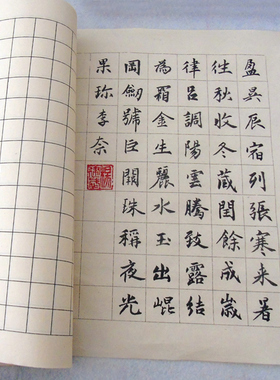 盈昃辰宿列張寒来暑
徃秋收冬蔵閏餘成歲
律呂調陽雲騰致露結
為霜金生麗水玉出崐
岡劍號巨闕珠稱夜光
果珎李柰